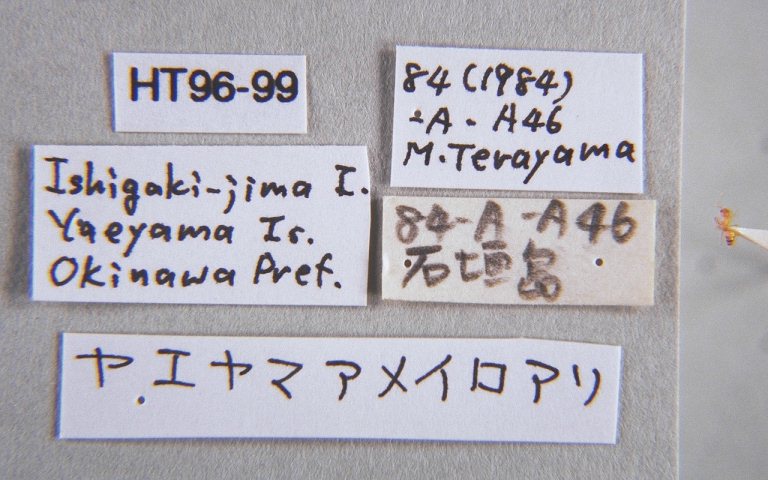 HT96-99
84(1984)
-A-A46
M.Terayama
Ishigaki-jima I.
Yaeyama Is.
Okinawa Pref.
84-A-A46
石垣島
ヤエヤマアメイロアリ